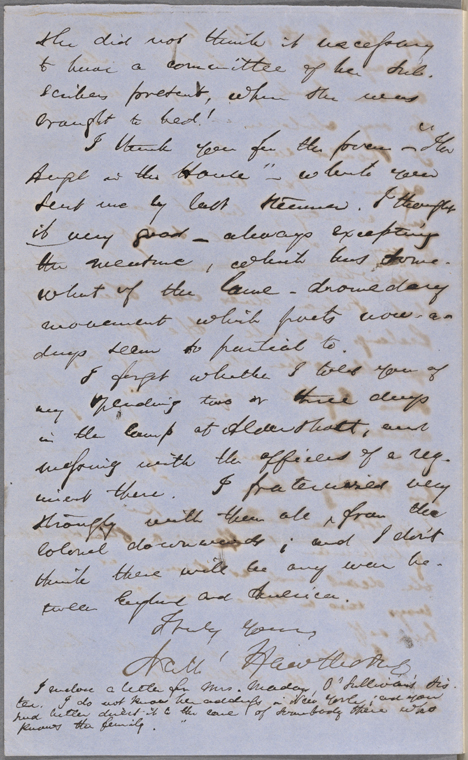 she did not think it necessary
to have a committee of her sub-
scribers present, when she was
brought to bed!
I thank you for the poem – "The
Angel in the House" – which you
sent me by last steamer. I thought
it very good – always excepting
the measure, which has some-
what of the lame-dromedary
movement which poets now-a-
days seem so partial to.
I forget whether I told you of
my spending two or three days
in the camp at Aldershott, and
messing with the officers of a reg-
iment there. I fraternized very
strongly with them all, from the
colonel downwards; and I don't
think there will be any war be-
tween England and America.
Truly Yours,
Nathl Hawthorne
I enclose a letter for Mrs. Madan, O'Sullivan's sis-
ter. I do not know her address in New York; and you
had better direct it to the care of somebody there who
knows the family.